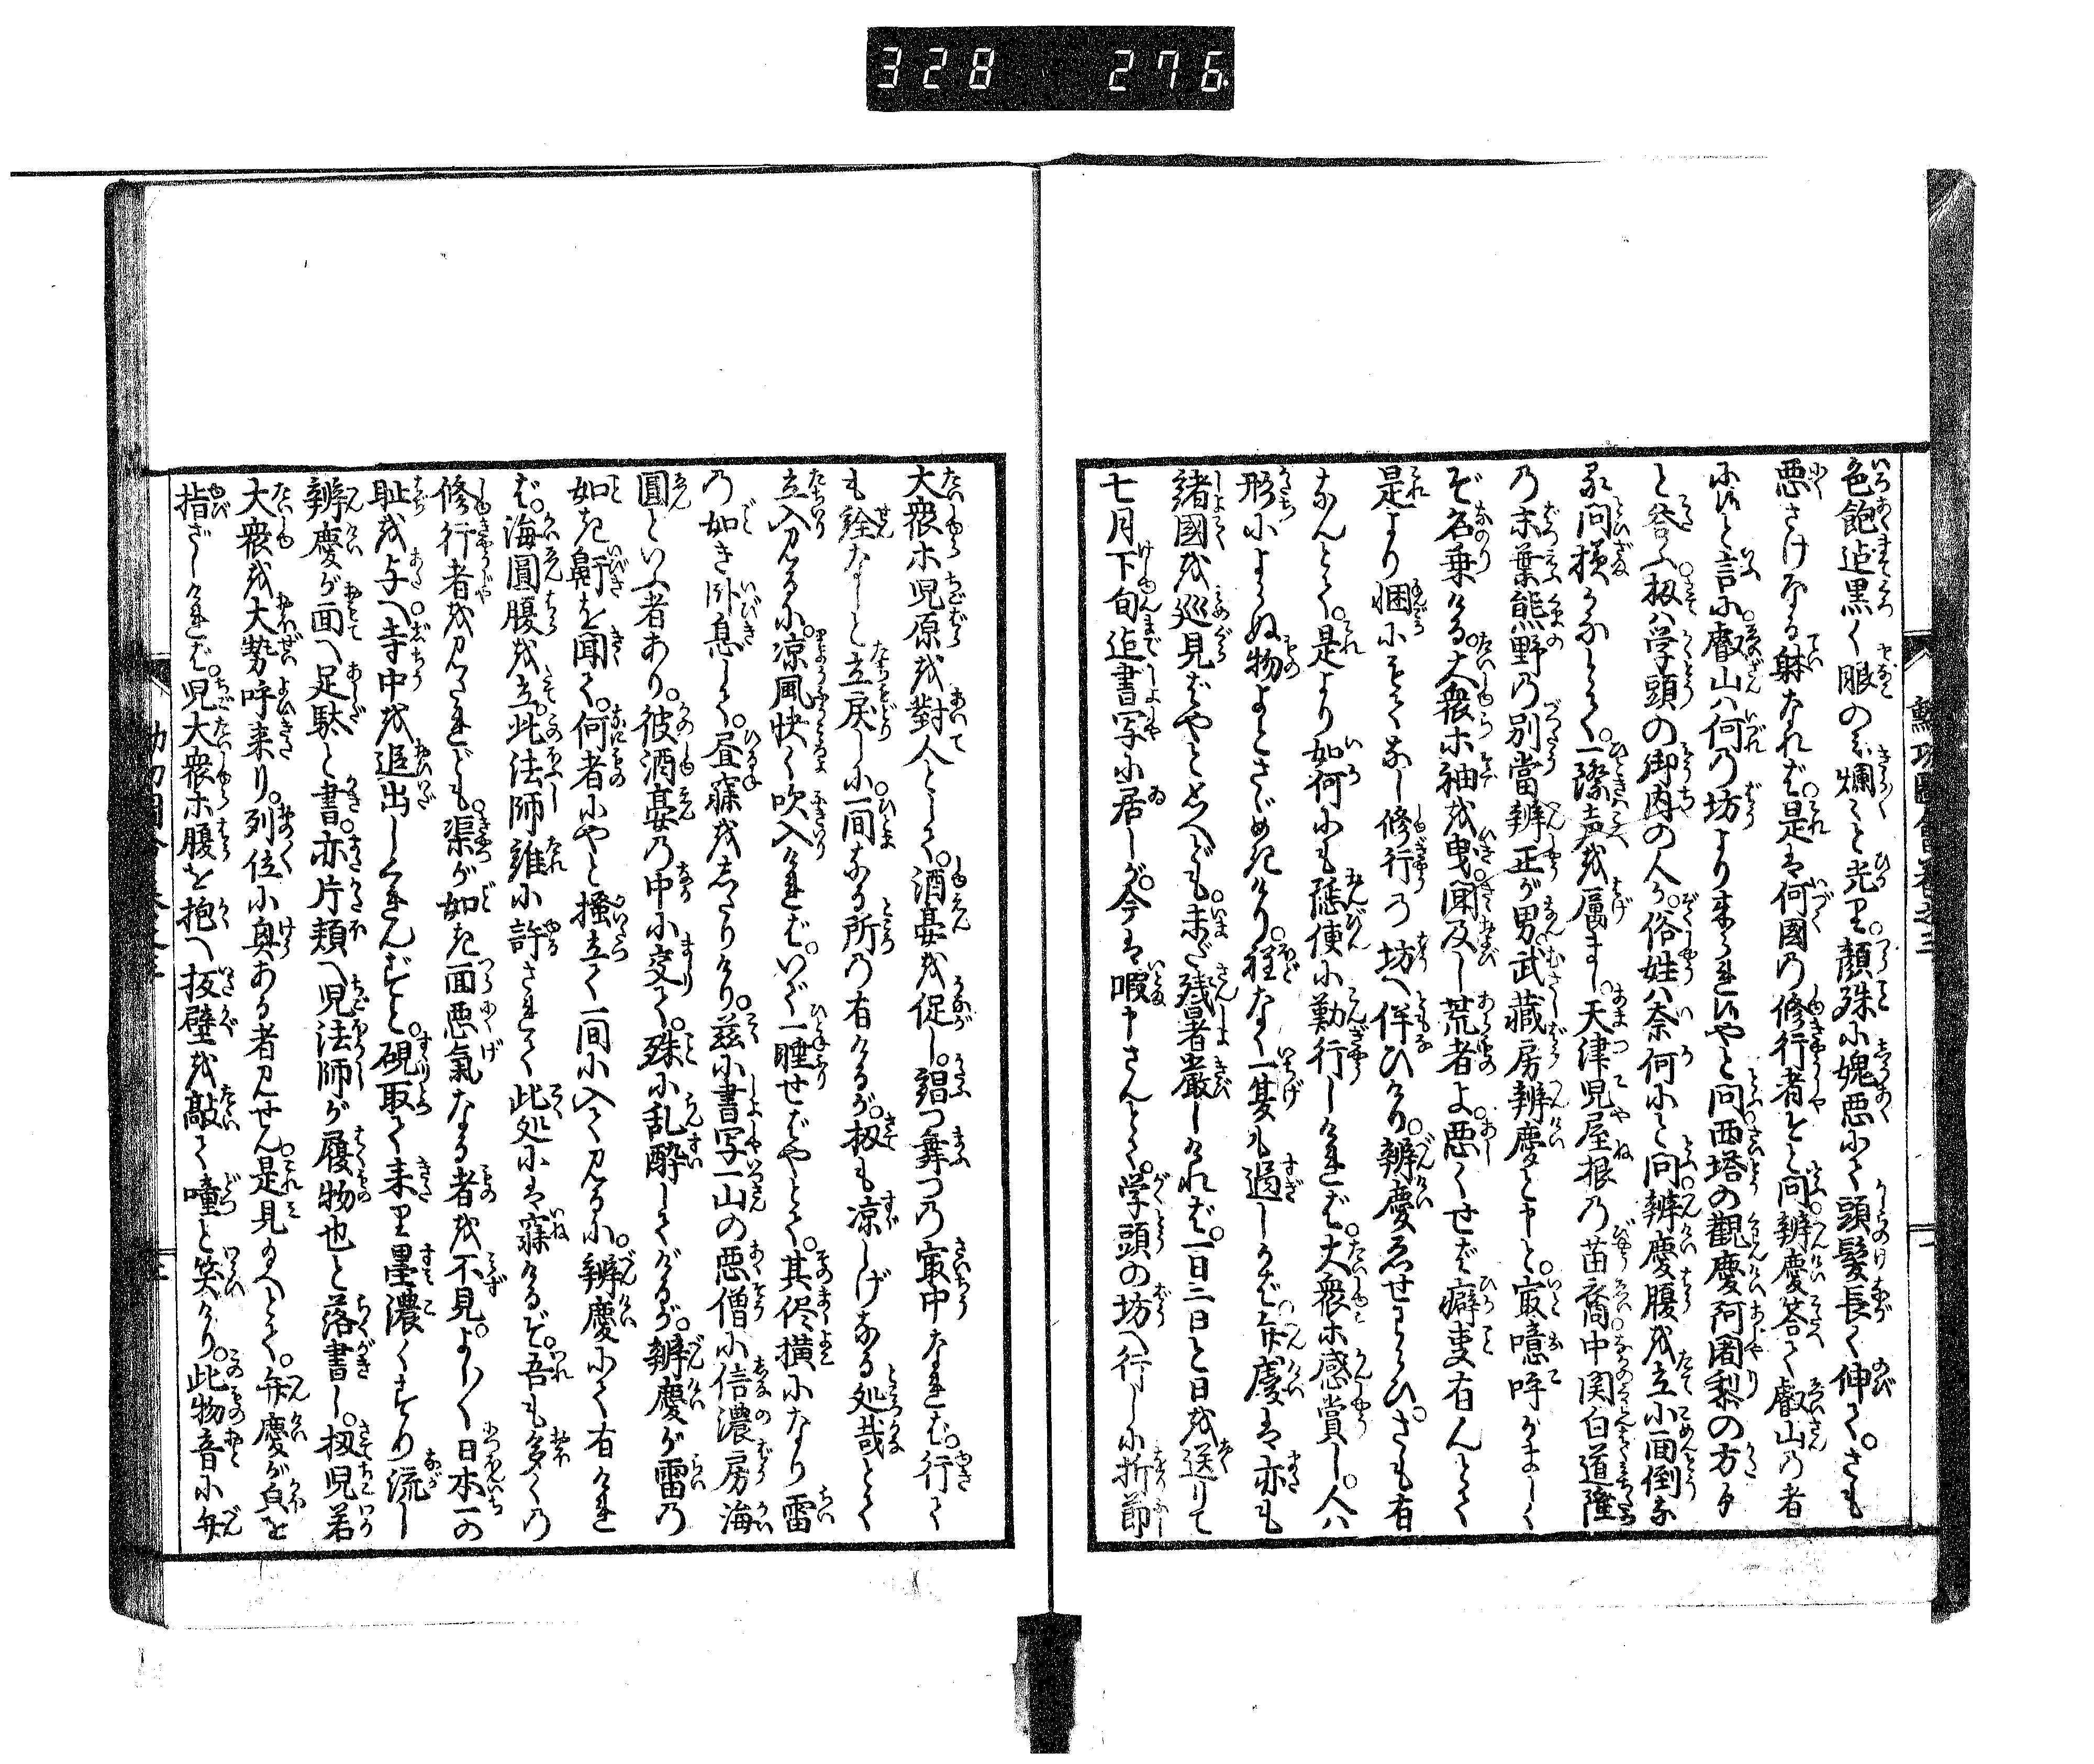 328 276
色飽迄黒く眼の不爛々と光り。顔殊に媿悪にて頭髪長く伸て。さも
悪さげなる躰なれば。是は何國の修行者ぞと問。辨慶答て叡山の者
に候と言に。叡山は何の坊より来られ候やと問。西塔の觀慶阿闍梨の方より
と答ふ。扨は学頭の御内の人か。俗姓は奈何にと問。辨慶腹を立。小面倒な
る問様かなとて。一際声を厲まし。天津児屋根の苗裔中関白道隆
の末葉熊野の別當辨正が男武藏房辨慶と申と。寂噫呼がましく
ぞ名乗ける。大衆等袖を曳。聞及し荒者よ。悪くせば癖事有んとて
是より悃にもてなし修行の坊へ伴ひけり。辨慶ゑせわらひ。さも有
なんとて。是より如何にも穏便に勤行しければ。大衆等感賞し。人は
形によらぬ物よとさゞめきけり。程なく一夏も過しかば。弁慶は亦も
諸國を巡見ばやと思へども。未だ残暑厳しければ。一日二日と日を送りて
七月下旬迄書写に居しが。今は暇申さんとて。学頭の坊へ行しに折節
大衆等児原を對人として。酒宴を促し。謡つ舞つの最中なれば。行て
も詮なしと立戻しに一間なる所の有けるが。扨も凉しげなる処哉とて
立入見るに。凉風快く吹入ければ。いで一睡せばやとて。其侭横になり雷
の如き卧息して。昼寐をしたりけり。茲に書写一山の悪僧に信濃房海
圓といふ者あり。彼酒宴の中に交て。殊に乱酔してけるが。辨慶が雷の
如き鼾を聞て。何者にやと搔立て一間に入て見るに。辨慶にて有けれ
ば。海圓腹を立。此法師誰に許されて此処には寐けるぞ。吾も多くの
修行者を見つれども。渠が如き面悪氣なる者を不見。よし〱日本一の
耻を与へ。寺中を追出しくれんずと。硯取て来り墨濃くすり流し
辨慶が面へ足駄と書。亦片頬へ児法師が履物也と落書し。扨児若
大衆を大勢呼来り。列位に奥ある者見せん。是見給へとて。弁慶が皃を
指ざしければ。児大衆等腹を抱へ板壁を敲て噇と笑けり。此物音に弁